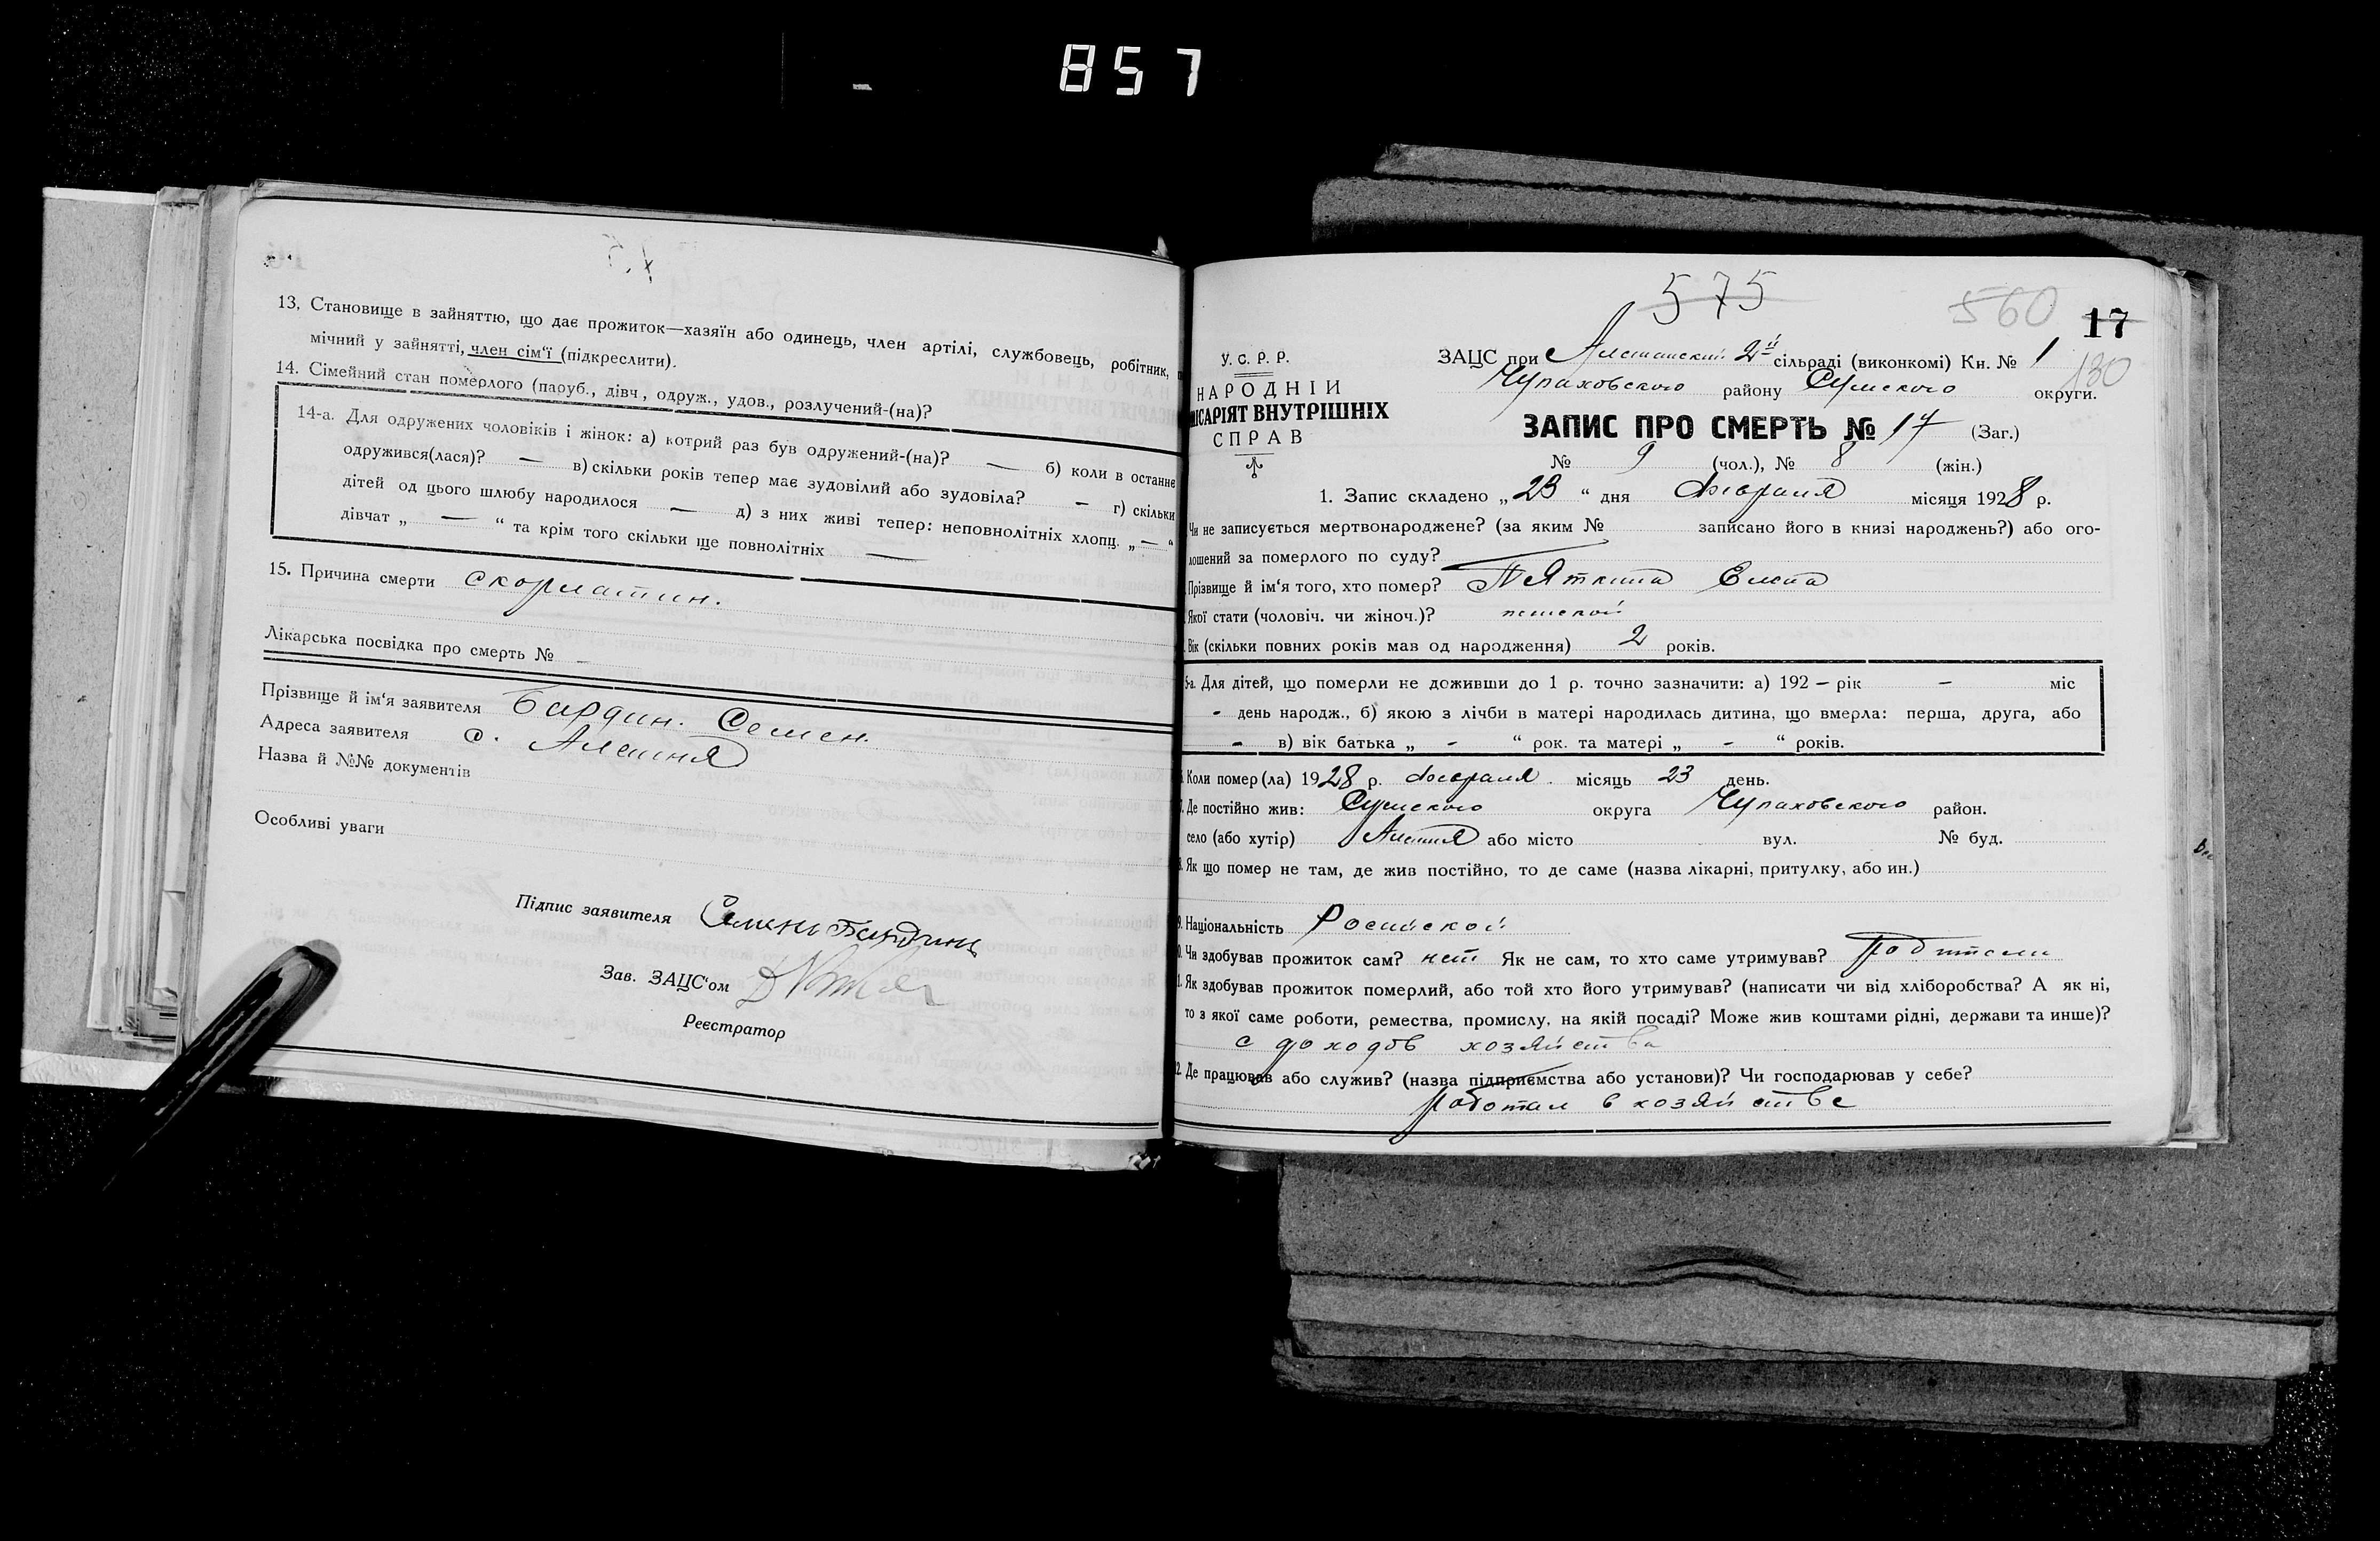 857
13. Становище в зайняттю, що дає прожиток—хазяїн або одинець, член артілі, службовець, робітник,
мічний у зайнятті, член сім'ї (підкреслити).
14. Сімейний стан померлого (паруб., дівч., одруж., удов., розлучений-(на)?
14-а. Для одружених чоловіків і жінок: а) котрий раз був одружений-(на)? — б) коли в останнє
одружився(лася)? — в) скільки років тепер має зудовілий або зудовіла? — г) скільки
дітей од цього шлюбу народилося — д) з них живі тепер: неповнолітніх хлопц. „ — “
дівчат „ — “ та крім того скільки ще повнолітніх —
15. Причина смерти скорлатин.
Лікарська посвідка про смерть № —
Прізвище й ім'я заявителя Бардин. Семен.
Адреса заявителя с. Алешня
Назва й №№ документів
Особливі уваги
Підпис заявителя Семенъ
Зав. ЗАЦС'ом
Реєстратор
575
560
17
130
У. С. Р. Р.
НАРОДНІЙ
ІСАРІЯТ ВНУТРІШНІХ
СПРАВ
ЗАЦС при Алешанский 2й сільраді (виконкомі) Кн. № 1
Чупаховского району Сумского округи.
ЗАПИС ПРО СМЕРТЬ № 17 (Заг.)
№ 9 (чол.), № 8 (жін.)
1. Запис складено „ 23 “ дня февраля місяця 1928 р.
Чи не записується мертвонароджене? (за яким № записано його в книзі народжень?) або ого-
лошений за померлого по суду?
Прізвище й ім'я того, хто помер? Пяткина Елена
Якої стати (чоловіч. чи жіноч.)? женской
Вік (скільки повних років мав од народження) 2 років.
5-а. Для дітей, що померли не доживши до 1 р. точно зазначити: а) 192 — рік — міс
- день народж., б) якою з лічби в матері народилась дитина, що вмерла: перша, друга, або
- в) вік батька „ - “ рок. та матері „ - “ років.
Коли помер(ла) 1928 р. февраля. місяць 23 день.
7. Де постійно жив: Сумского округа Чупаховского район.
село (або хутір) Алешня або місто вул. № буд.
8. Як що помер не там, де жив постійно, то де саме (назва лікарні, притулку, або ин.)
9. Національність Российской
0. Чи здобував прожиток сам? нет Як не сам, то хто саме утримував? родители
1. Як здобував прожиток померлий, або той хто його утримував? (написати чи від хліборобства? А як ні,
то з якої саме роботи, ремества, промислу, на якій посаді? Може жив коштами рідні, держави та инше)?
с доходов хозяйства
2. Де працював або служив? (назва підприємства або установи)? Чи господарював у себе?
работал в хозяйстве